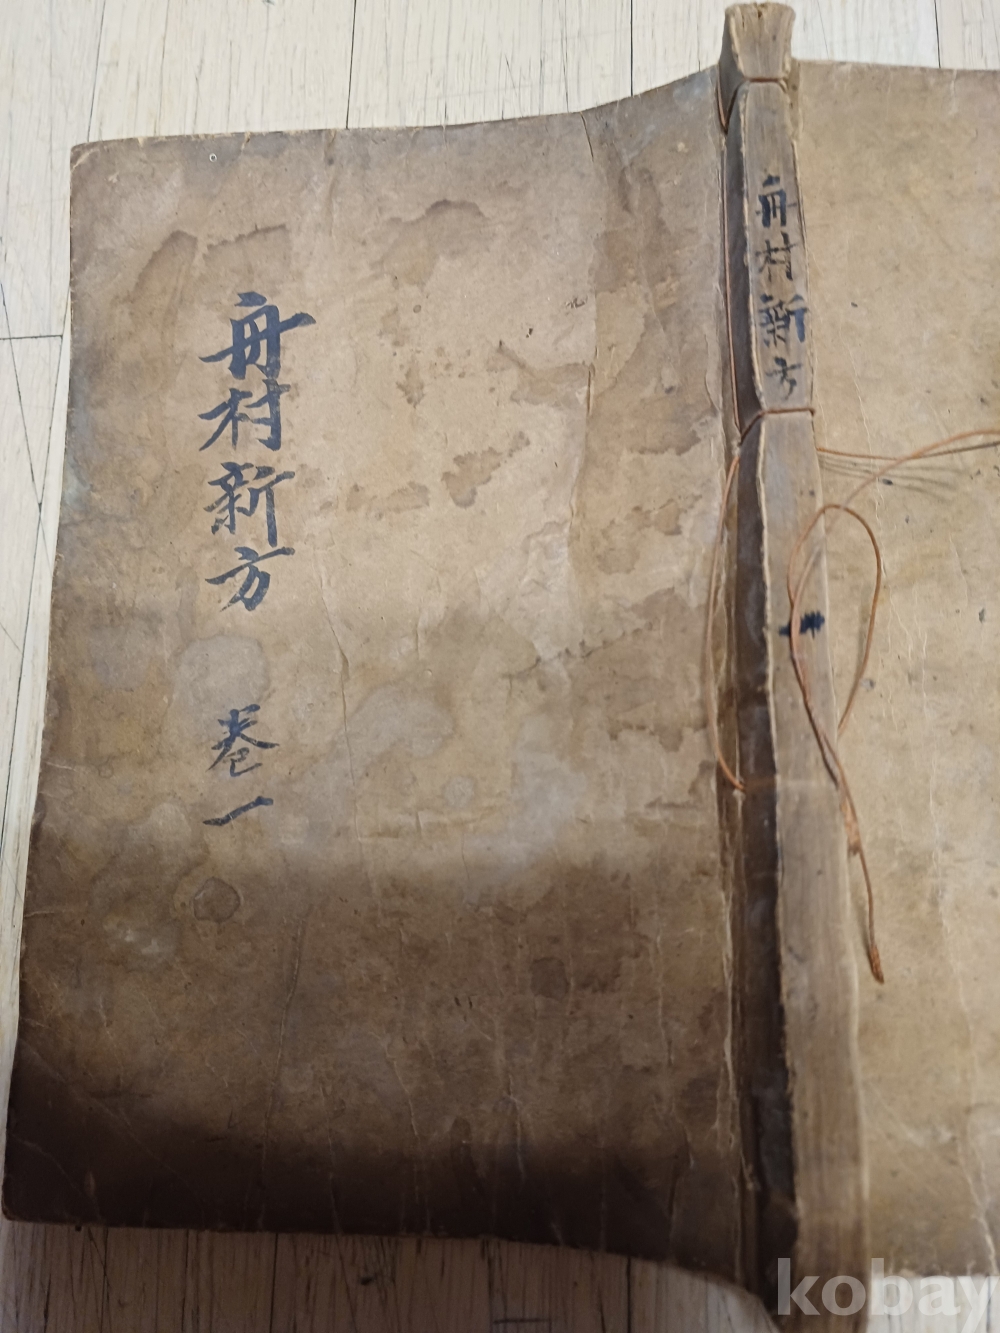 舟村新方
卷一
舟村新方
kobay